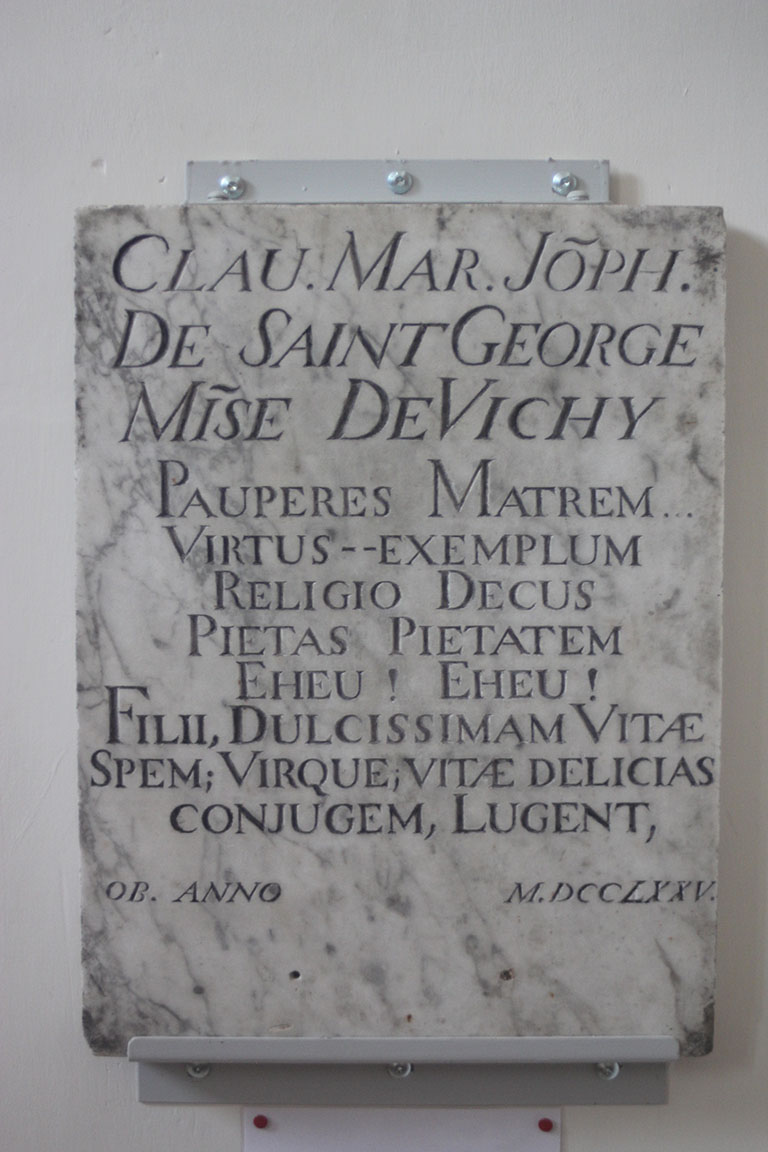 CLAU. MAR. JÕPH.
DE SAINT GEORGE
MĨSE DE VICHY
PAUPERES MATREM...
VIRTUS--EXEMPLUM
RELIGIO DECUS
PIETAS PIETATEM
EHEU ! EHEU !
FILII, DULCISSIMAM VITÆ
SPEM; VIRQUE; VITÆ DELICIAS
CONJUGEM, LUGENT,
OB. ANNO M.DCCLXXV.